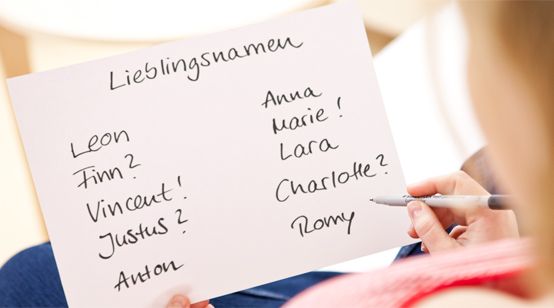 Lieblingsnamen
Leon
Finn?
Vincent!
Justus?
Anton
Anna
Marie!
Lara
Charlotte?
Romy